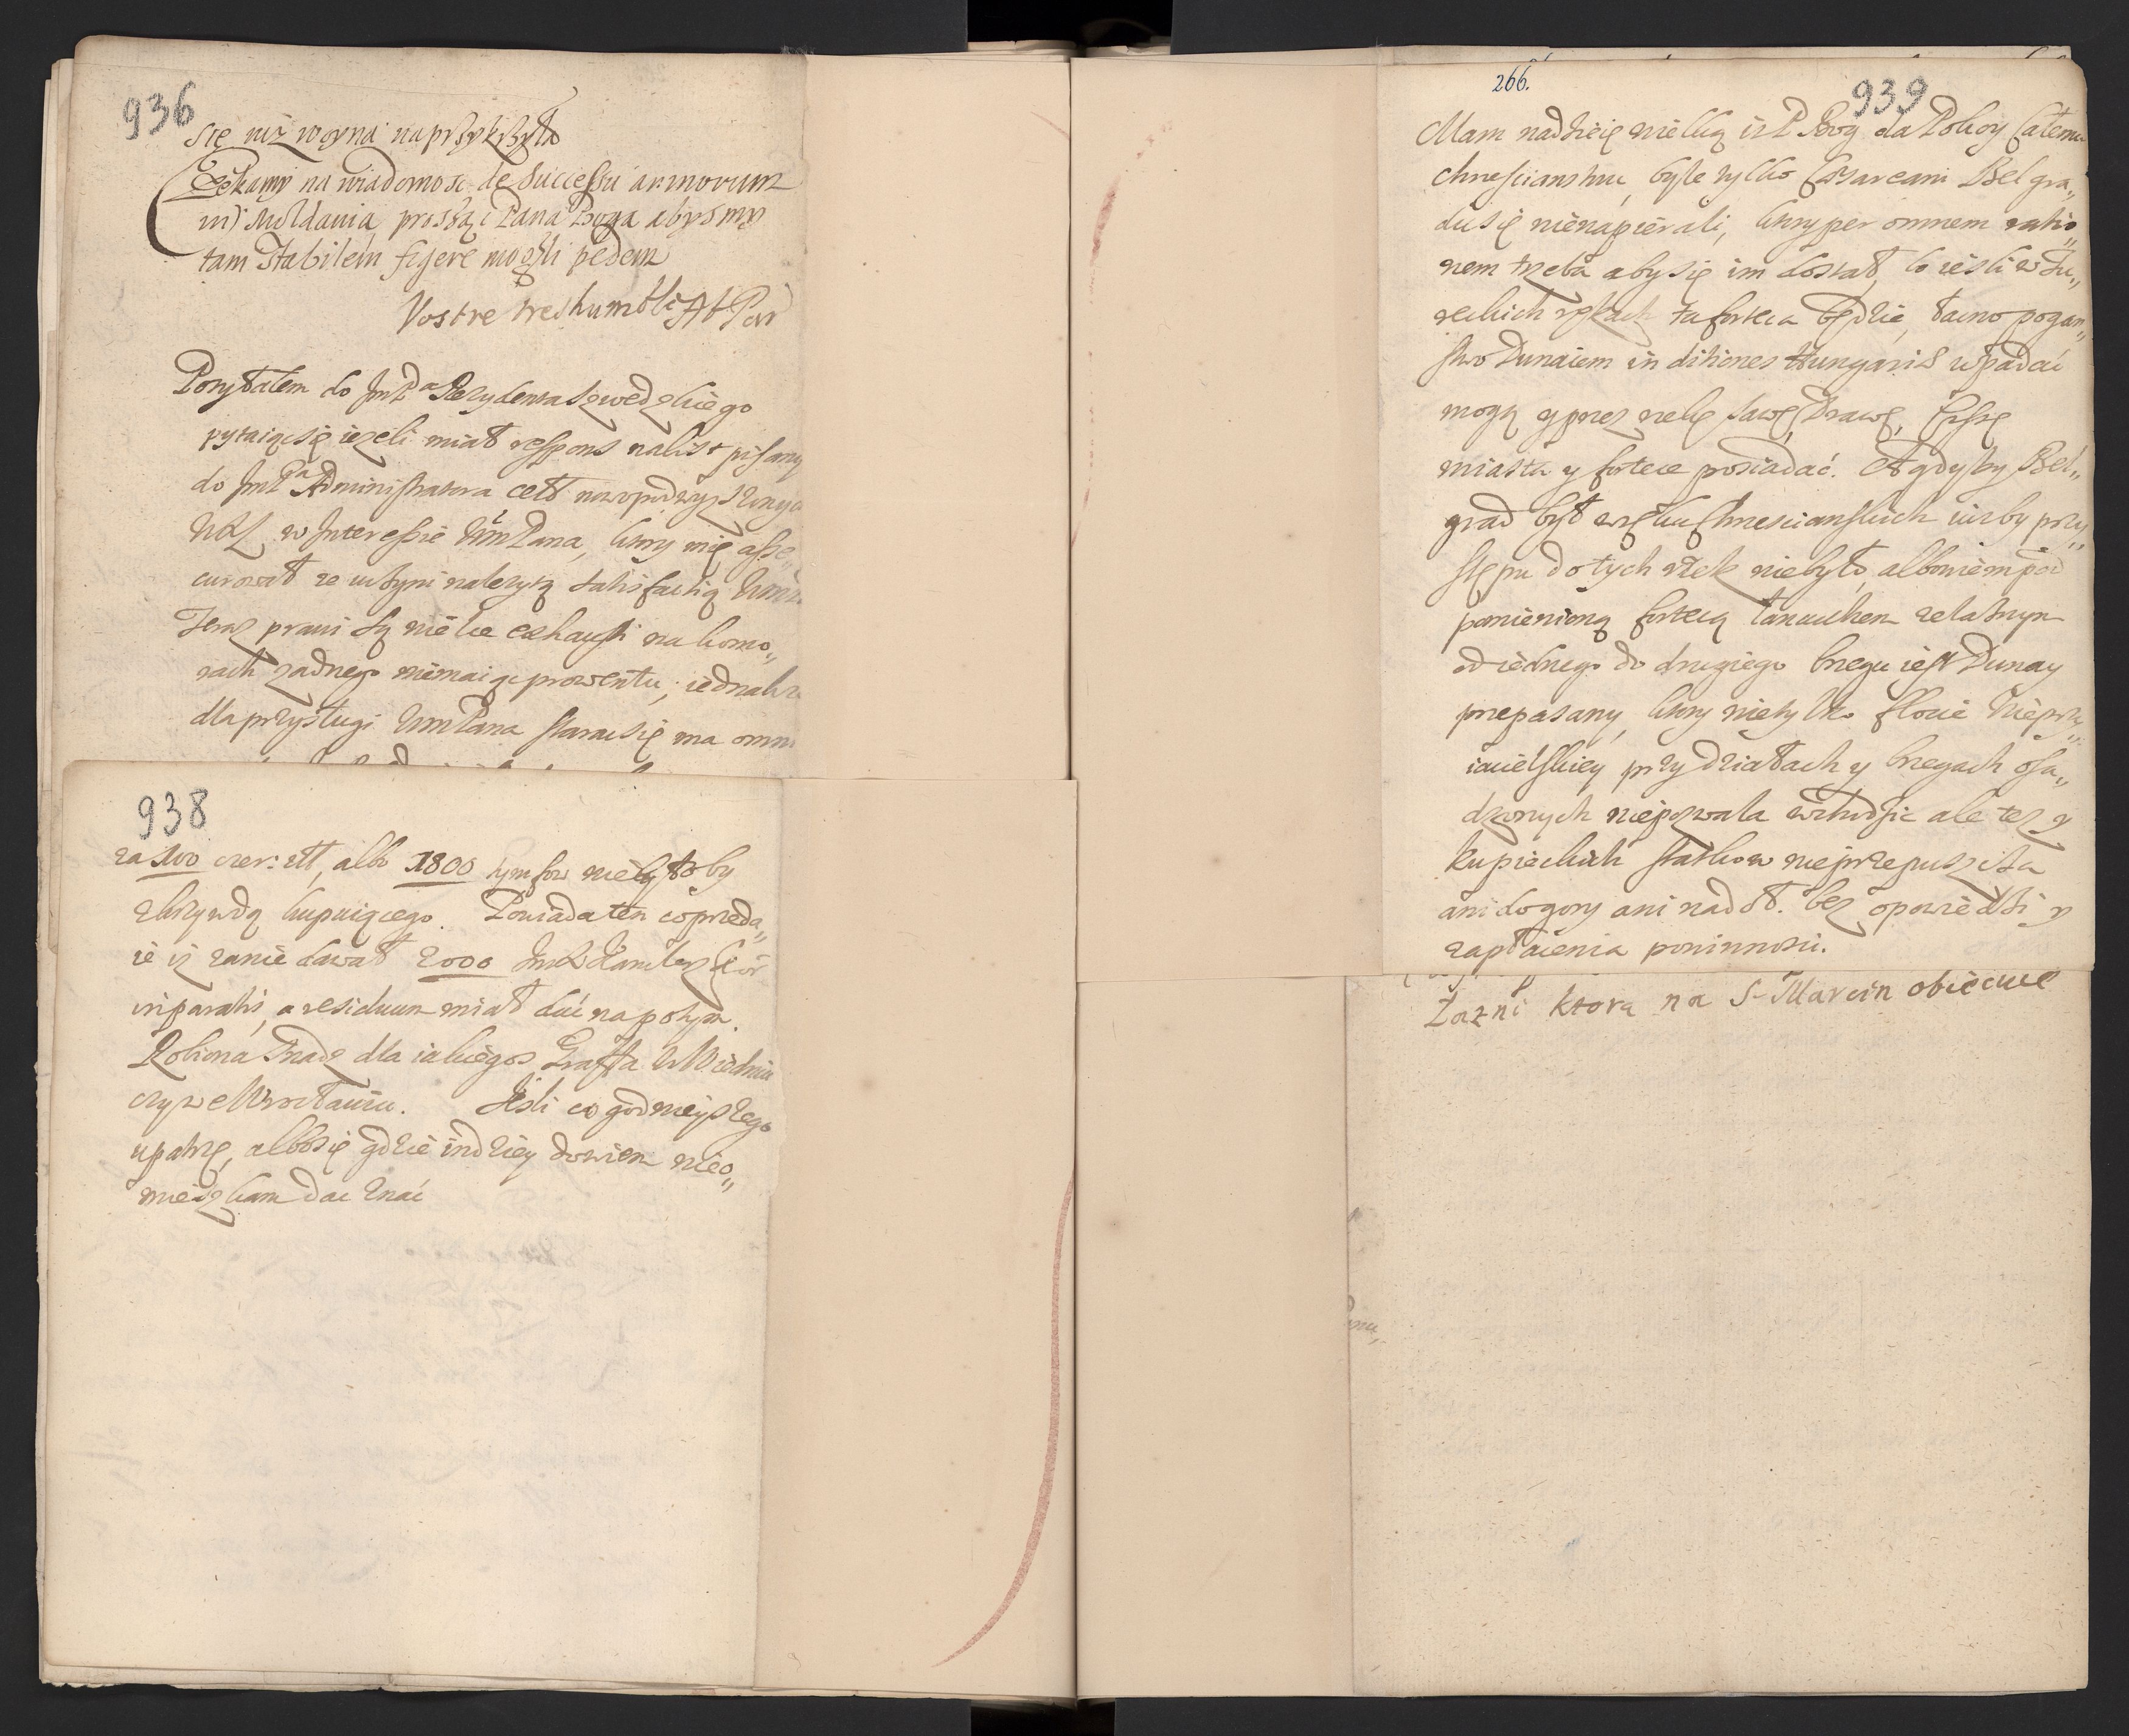 936
się iuż woyna naprzykrzyła
Czekamy na wiadomosc de Successu armorum
in Moldavia, prosząc Pana Boga abysmy
tam Stabilem figere mogli pedem
Vostre tres humble
Posyłałem do Jmć Pa Rezydenta Szwedzkiego
pytaiąc się ieżeli miał respons na list pisany
do Jmć Pa Administratora cełł nowopodwyzszonych
w Interessie WmPana, ktory mię asse„
curował ze uczyni nalezytą satisfactią
Teraz prawi są wielce exhausti na komo„
rach zadnego niemaiąc prowentu; iednakze
dla przysługi WmPana starac się ma
938
za 100 czer: złł, albo 1800 tymfow nie byłoby
z krzywdą kupuiącego. Powiada ten co przeda„
ie iz zanie dawał 2000
in paratis, a residuum miał dać napotym.
Robiona snadz dla iakiegos Graffa w Wiedniu
czy we Wrocławiu. Jesli co godnieyszego
upatrzę, albo się gdzie indziey dowiem nieo„
mieszkam dac znać
266.
939
Mam nadzieię wielką iz P Bog da Pokoy całemu
chrescianstwu, byle tylko Cæsareani Belgra„
du się nienapierali, ktory per omnem ratio„
nem trzeba aby się im dostał, bo iesli w Tu„
reckich rękach ta forteca będzie, łacno pogan„
stwo Dunaiem in ditiones Hungariæ wpadać
mogą y przez rzekę Sawę, Drawę, Cissę
miasta y fortece posiadać. A gdyby Bel„
grad był w ręku Chrescianskich iuzby przy„
stępu do tych rzek niebyło, albowiem pod
pomienioną fortecą łancuchem zelaznym
od iednego do drugiego brzegu iest Dunay
przepasany, ktory nietylko flocie Nieprzy„
iacielskiey przy działach y brzegach osa„
dzonych niepozwala wchodzic ale tez y
kupieckich statkow nieprzepuszcza
ani do gory ani na doł. bez opowiedzi y
zapłacenia powinnosci.
Łazni ktora na S- Marcin obiecuie